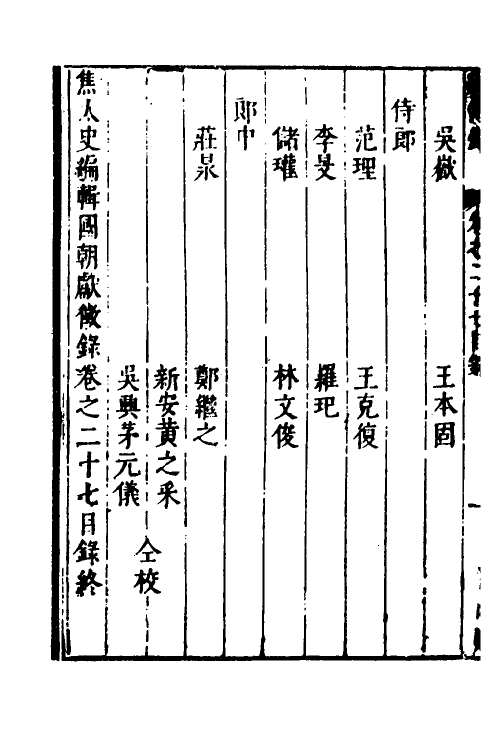 吳嶽　王本固
侍郎
范理　王克復
李旻　羅玘
儲瓘　林文俊
郎中
莊㫤　鄭繼之
新安黃之寀
吳興茅元儀
仝校
焦太史編輯國朝獻徵錄卷之二十七目錄終